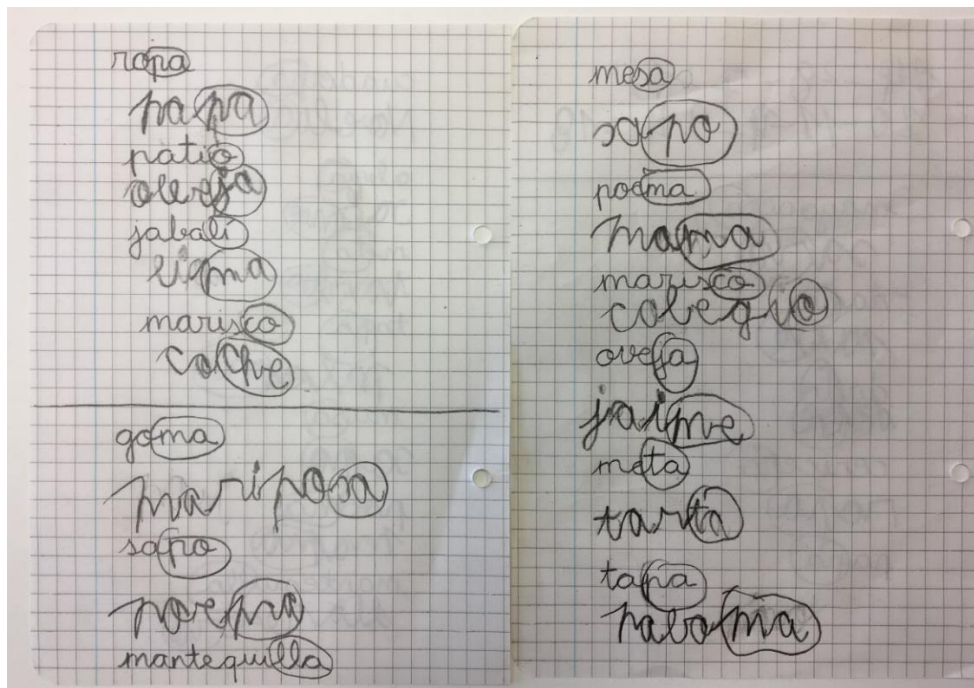 ropa
papa
patio
oveja
jabalí
marisco
coche
goma
mariposa
sapo
poema
mantequilla
mesa
sapo
poema
mama
marisco
colegio
oveja
jaime
meta
tarta
tapa
paloma